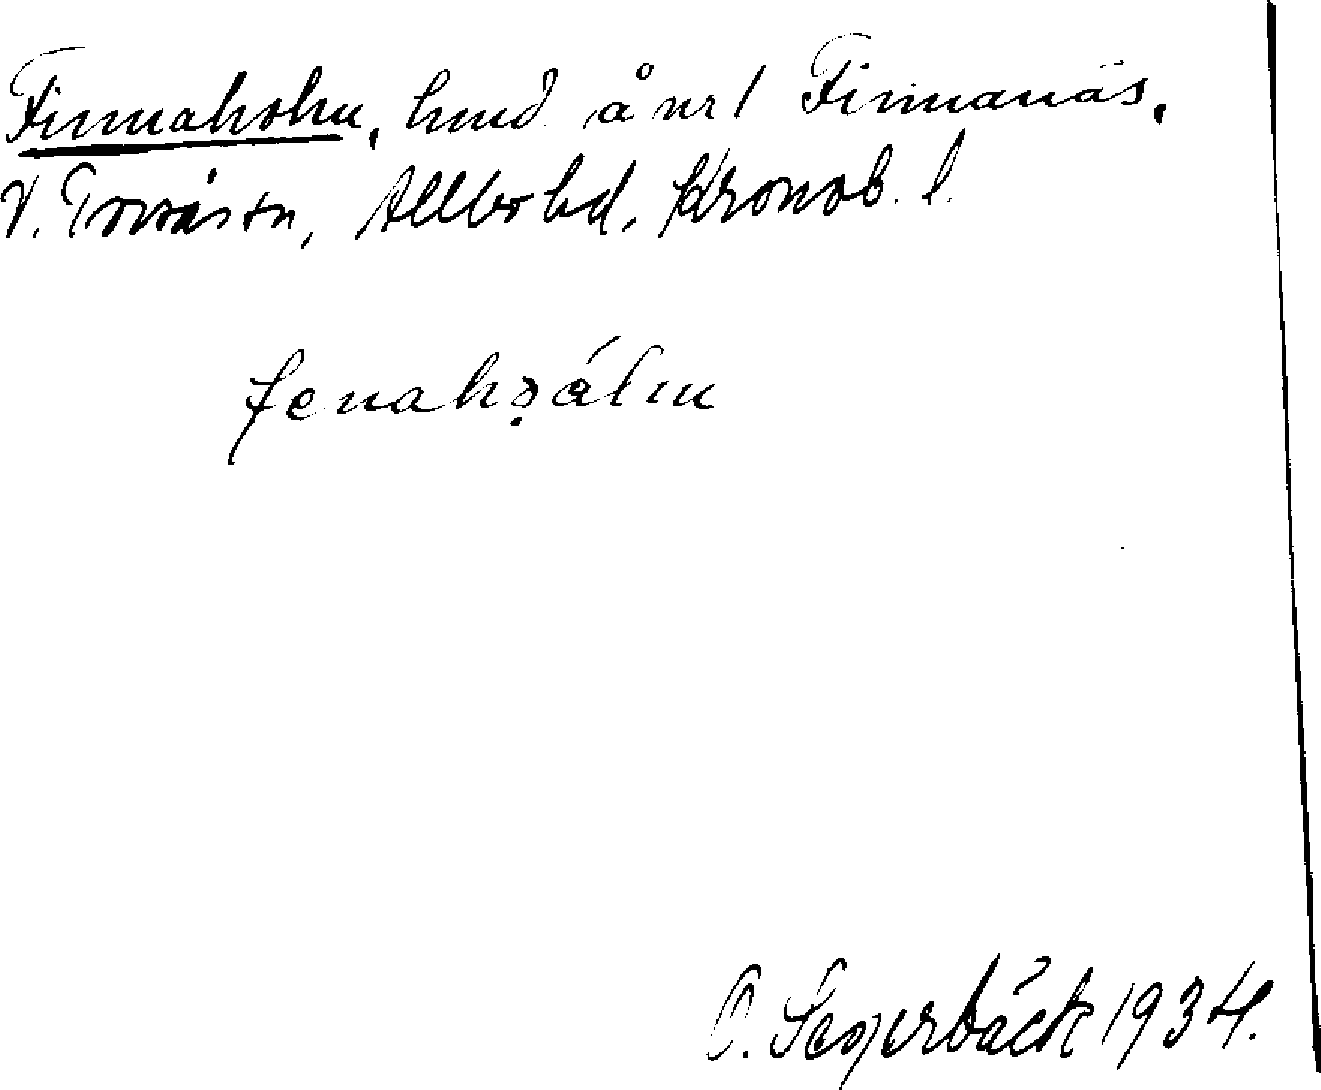 Finnaholm, lund å nr 1 Finnanäs,
V. Torsås sn, Allbo hd, Kronob. l.
fenahọálm
B. Segerbäck 1934.